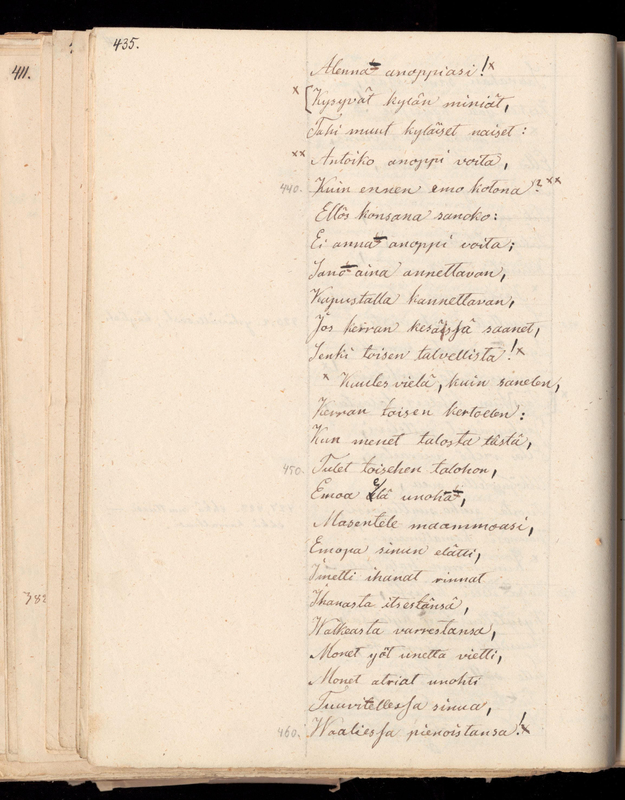 435.
411.
Alenna anoppiasi!x
x [Kysyvät kylän miniät,
Tahi muut kyläiset naiset:
xx Antoiko anoppi voita,
440. Kuin ennen emo kotona? xx
Ellös konsana sanoko:
Ei anna anoppi voita;
Sano aina annettavan,
Kapustalla kannettavan,
Jos kerran kesässä saanet,
Senki toisen talvellista!x
x Kuules vielä, kuin sanelen,
Kerran toisen kertoelen:
Kun menet talosta tästä,
450. Tulet toisehen talohon,
Emoa elä unoha,
Masentele maammoasi,
Emopa sinun elätti,
Imetti ihanat rinnat
Ihanasta itsestänsä,
Walkeasta varrestansa,
Monet yöt unetta vietti,
Monet atriat unohti
Tuuvitellessa sinua,
460. Waaliessa pienoistansa!x
382